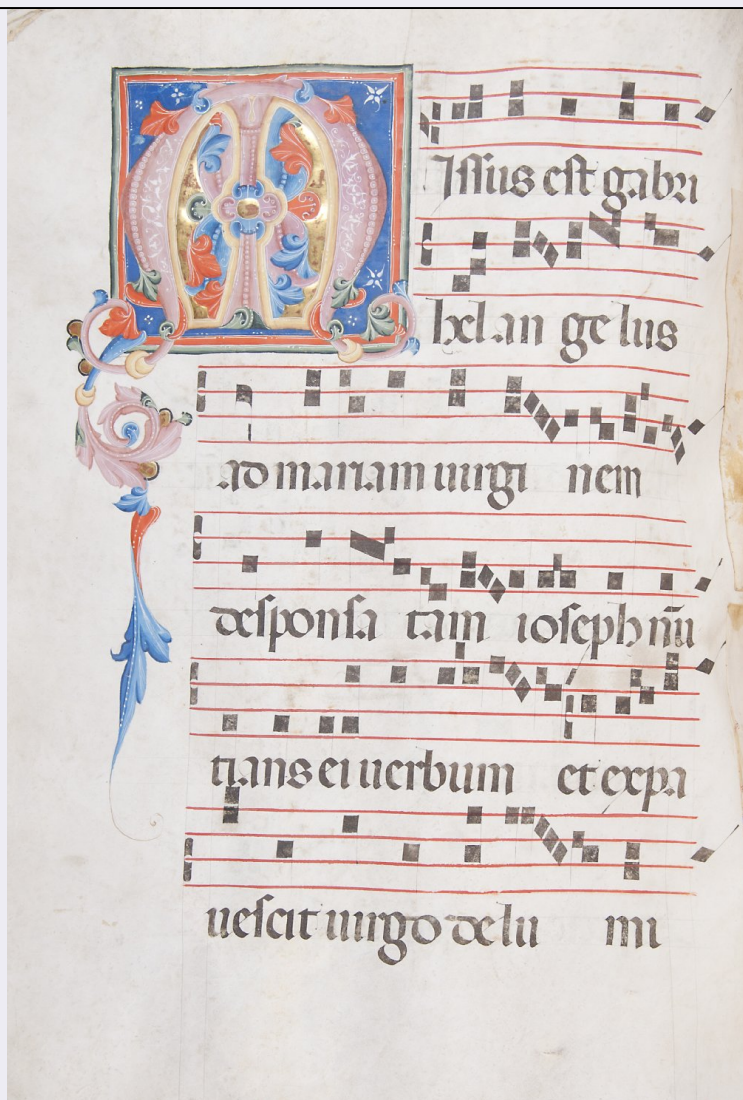 Missus est gabri
hel an ge lus
ad mariam uirgi nem
desponsa tam ioseph nū
tians ei uerbum et expa
uescit uirgo de lu mi